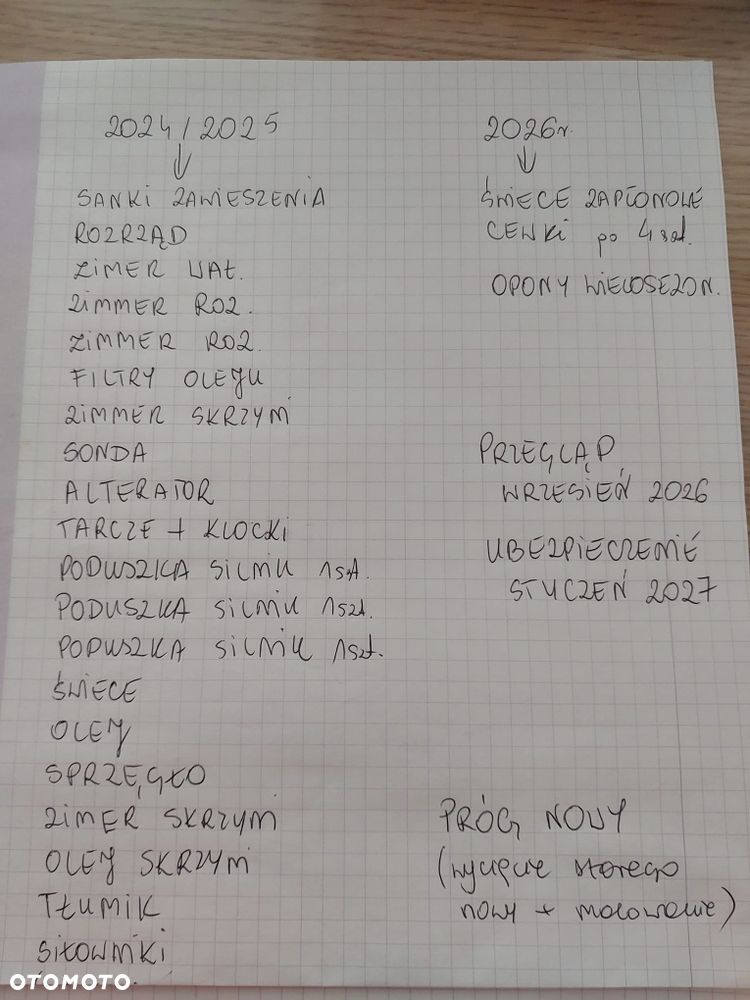 2024/2025
SANKI ZAWIESZENIA
ROZRZĄD
ZIMER WAŁ.
ZIMMER ROZ.
ZIMMER ROZ.
FILTRY OLEJU
ZIMMER SKRZYM
SONDA
ALTERATOR
TARCZE + KLOCKI
PODUSZKA SILNIKU 1szt.
PODUSZKA SILNIKU 1szt.
PODUSZKA SILNIKU 1szt.
ŚWIECE
OLEJ
SPRZĘGŁO
ZIMER SKRZYM
OLEJ SKRZYM
TŁUMIK
SIŁOWNIKI
2026r.
ŚWIECE ZAPŁONOWE
CEWKI po 4 szt.
OPONY WIELOSEZON.
PRZEGLĄD,
WRZESIEŃ 2026
UBEZPIECZENIE
STYCZEŃ 2027
PRÓG NOWY
(wycięcie starego
nowy + malowanie)
OTOMOTO